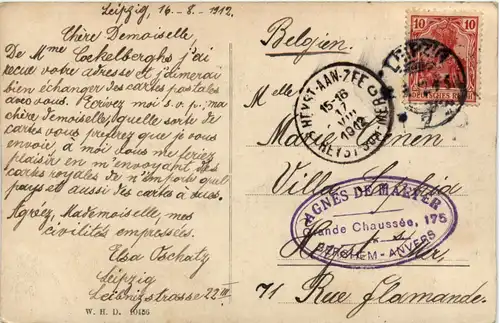 Leipzig, 16-8-1912.
Chère Demoiselle,
De Mme Cockelberghs j'ai
recue votre adresse et j'aimerai
bien échanger des cartes postales
avec vous. Ecrivez moi s.v.p. ma
chère demoiselle, quelle sorte de
cartes vous preferez que je vous
envoie, à moi vous me feriez
plaisir en m'envoyant des
cartes royales de n'importe quel
pays et aussi des cartes à vues.
Agréez, Mademoiselle, mes
civilités empressées.
Elsa Oschatz
Leipzig
Leibnizstrasse 22III
W. H. D. 10456
Belgien.
10
10
DEUTSCHES REICH
LEIPZIG
HEYST-AAN-ZEE
15-16
17
1912
HEYST-SUR-MER
Melle
Marie
Villa
AGNÈS DE MAEYER
Grande Chaussée, 175
BERCHEM-ANVERS
71 Rue Flamande.